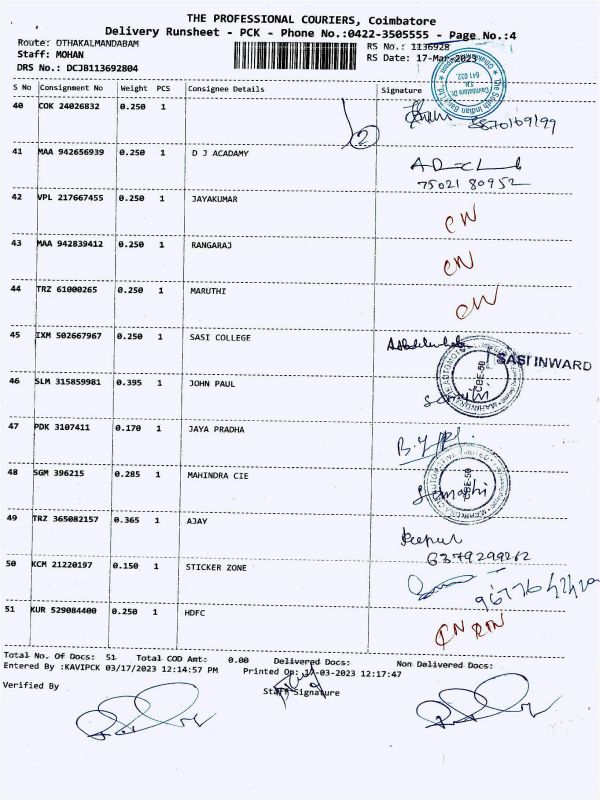 THE PROFESSIONAL COURIERS, Coimbatore
Delivery Runsheet - PCK - Phone No.:0422-3505555 - Page No.:4
Route: OTHAKALMANDABAM
RS No.: 1136928
Staff: MOHAN
RS Date: 17-Mar-2023
DRS No.: DCJB113692804
S No Consignment No Weight PCS Consignee Details Signature
40 COK 24026832 0.250 1 2 8870169199
41 MAA 942656939 0.250 1 D J ACADAMY
7502180952
42 VPL 217667455 0.250 1 JAYAKUMAR CN
43 MAA 942839412 0.250 1 RANGARAJ CN
44 TRZ 61000265 0.250 1 MARUTHI CN
45 IXM 502667967 0.250 1 SASI COLLEGE
SASI INWARD
46 SLM 315859981 0.395 1 JOHN PAUL
CBE-50
47 PDK 3107411 0.170 1 JAYA PRADHA
48 SGM 396215 0.285 1 MAHINDRA CIE
CBE-50
49 TRZ 365082157 0.365 1 AJAY
6379299262
50 KCM 21220197 0.150 1 STICKER ZONE
51 KUR 529084400 0.250 1 HDFC CN
Total No. Of Docs: 51 Total COD Amt: 0.00 Delivered Docs: Non Delivered Docs:
Entered By :KAVIPCK 03/17/2023 12:14:57 PM Printed On: 17-03-2023 12:17:47
Verified By Staff Signature